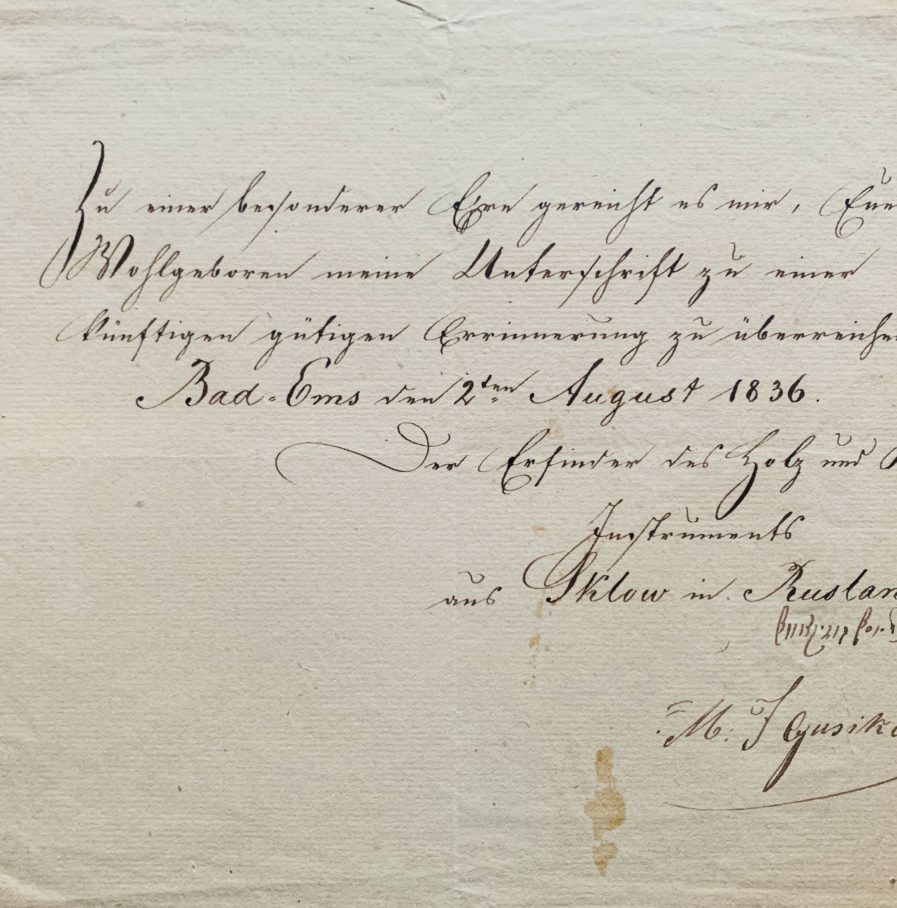 Zu einer besonderer Ehre gereicht es mir, Eue
Wohlgeboren meine Unterschrift zu einer
künftigen gütigen Errinnerung zu überreiche
Bad-Ems den 2ten August 1836.
Der Erfinder des Holz und
Instruments
aus Sklow in Ruslan
M: J Gusik